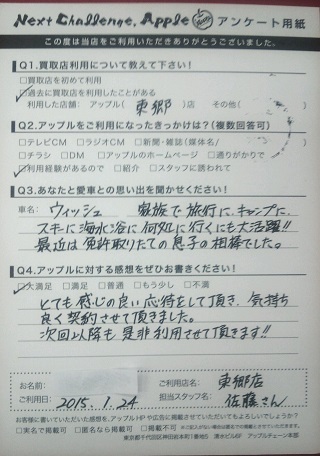 Next Challenge, Apple アンケート用紙
この度は当店をご利用いただきありがとうございました。
Q1.買取店利用について教えて下さい!
□買取店を初めて利用
☑過去に買取店を利用したことがある
利用した店舗: アップル( 東郷 )店 その他( )
Q2.アップルをご利用になったきっかけは?(複数回答可)
□テレビCM □ラジオCM □新聞・雑誌(媒体名/ )
□チラシ □DM □アップルのホームページ □通りがかりで
☑利用経験があるので □紹介 □スタッフに誘われて
Q3.あなたと愛車との思い出を聞かせてください!
車名: ウィッシュ 家族で旅行に、キャンプに、
スキーに海水浴に何処に行くにも大活躍!!
最近は免許取りたての息子の相棒でした。
Q4.アップルに対する感想をぜひお書きください!
☑大満足 □満足 □普通 □もう少し □不満
とても感じの良い応待をして頂き、気持ち
良く契約させて頂きました。
次回以降も是非利用させて頂きます!!
お名前:
ご利用店名: 東郷店
ご利用日: 2015.1.24
担当スタッフ名: 佐藤さん
お客様に書いていただいた感想を、アップルHPや広告に掲載させていただいてもよろしいでしょうか?
□実名で掲載可 □匿名なら掲載可 □掲載不可
アップルチェーン本部